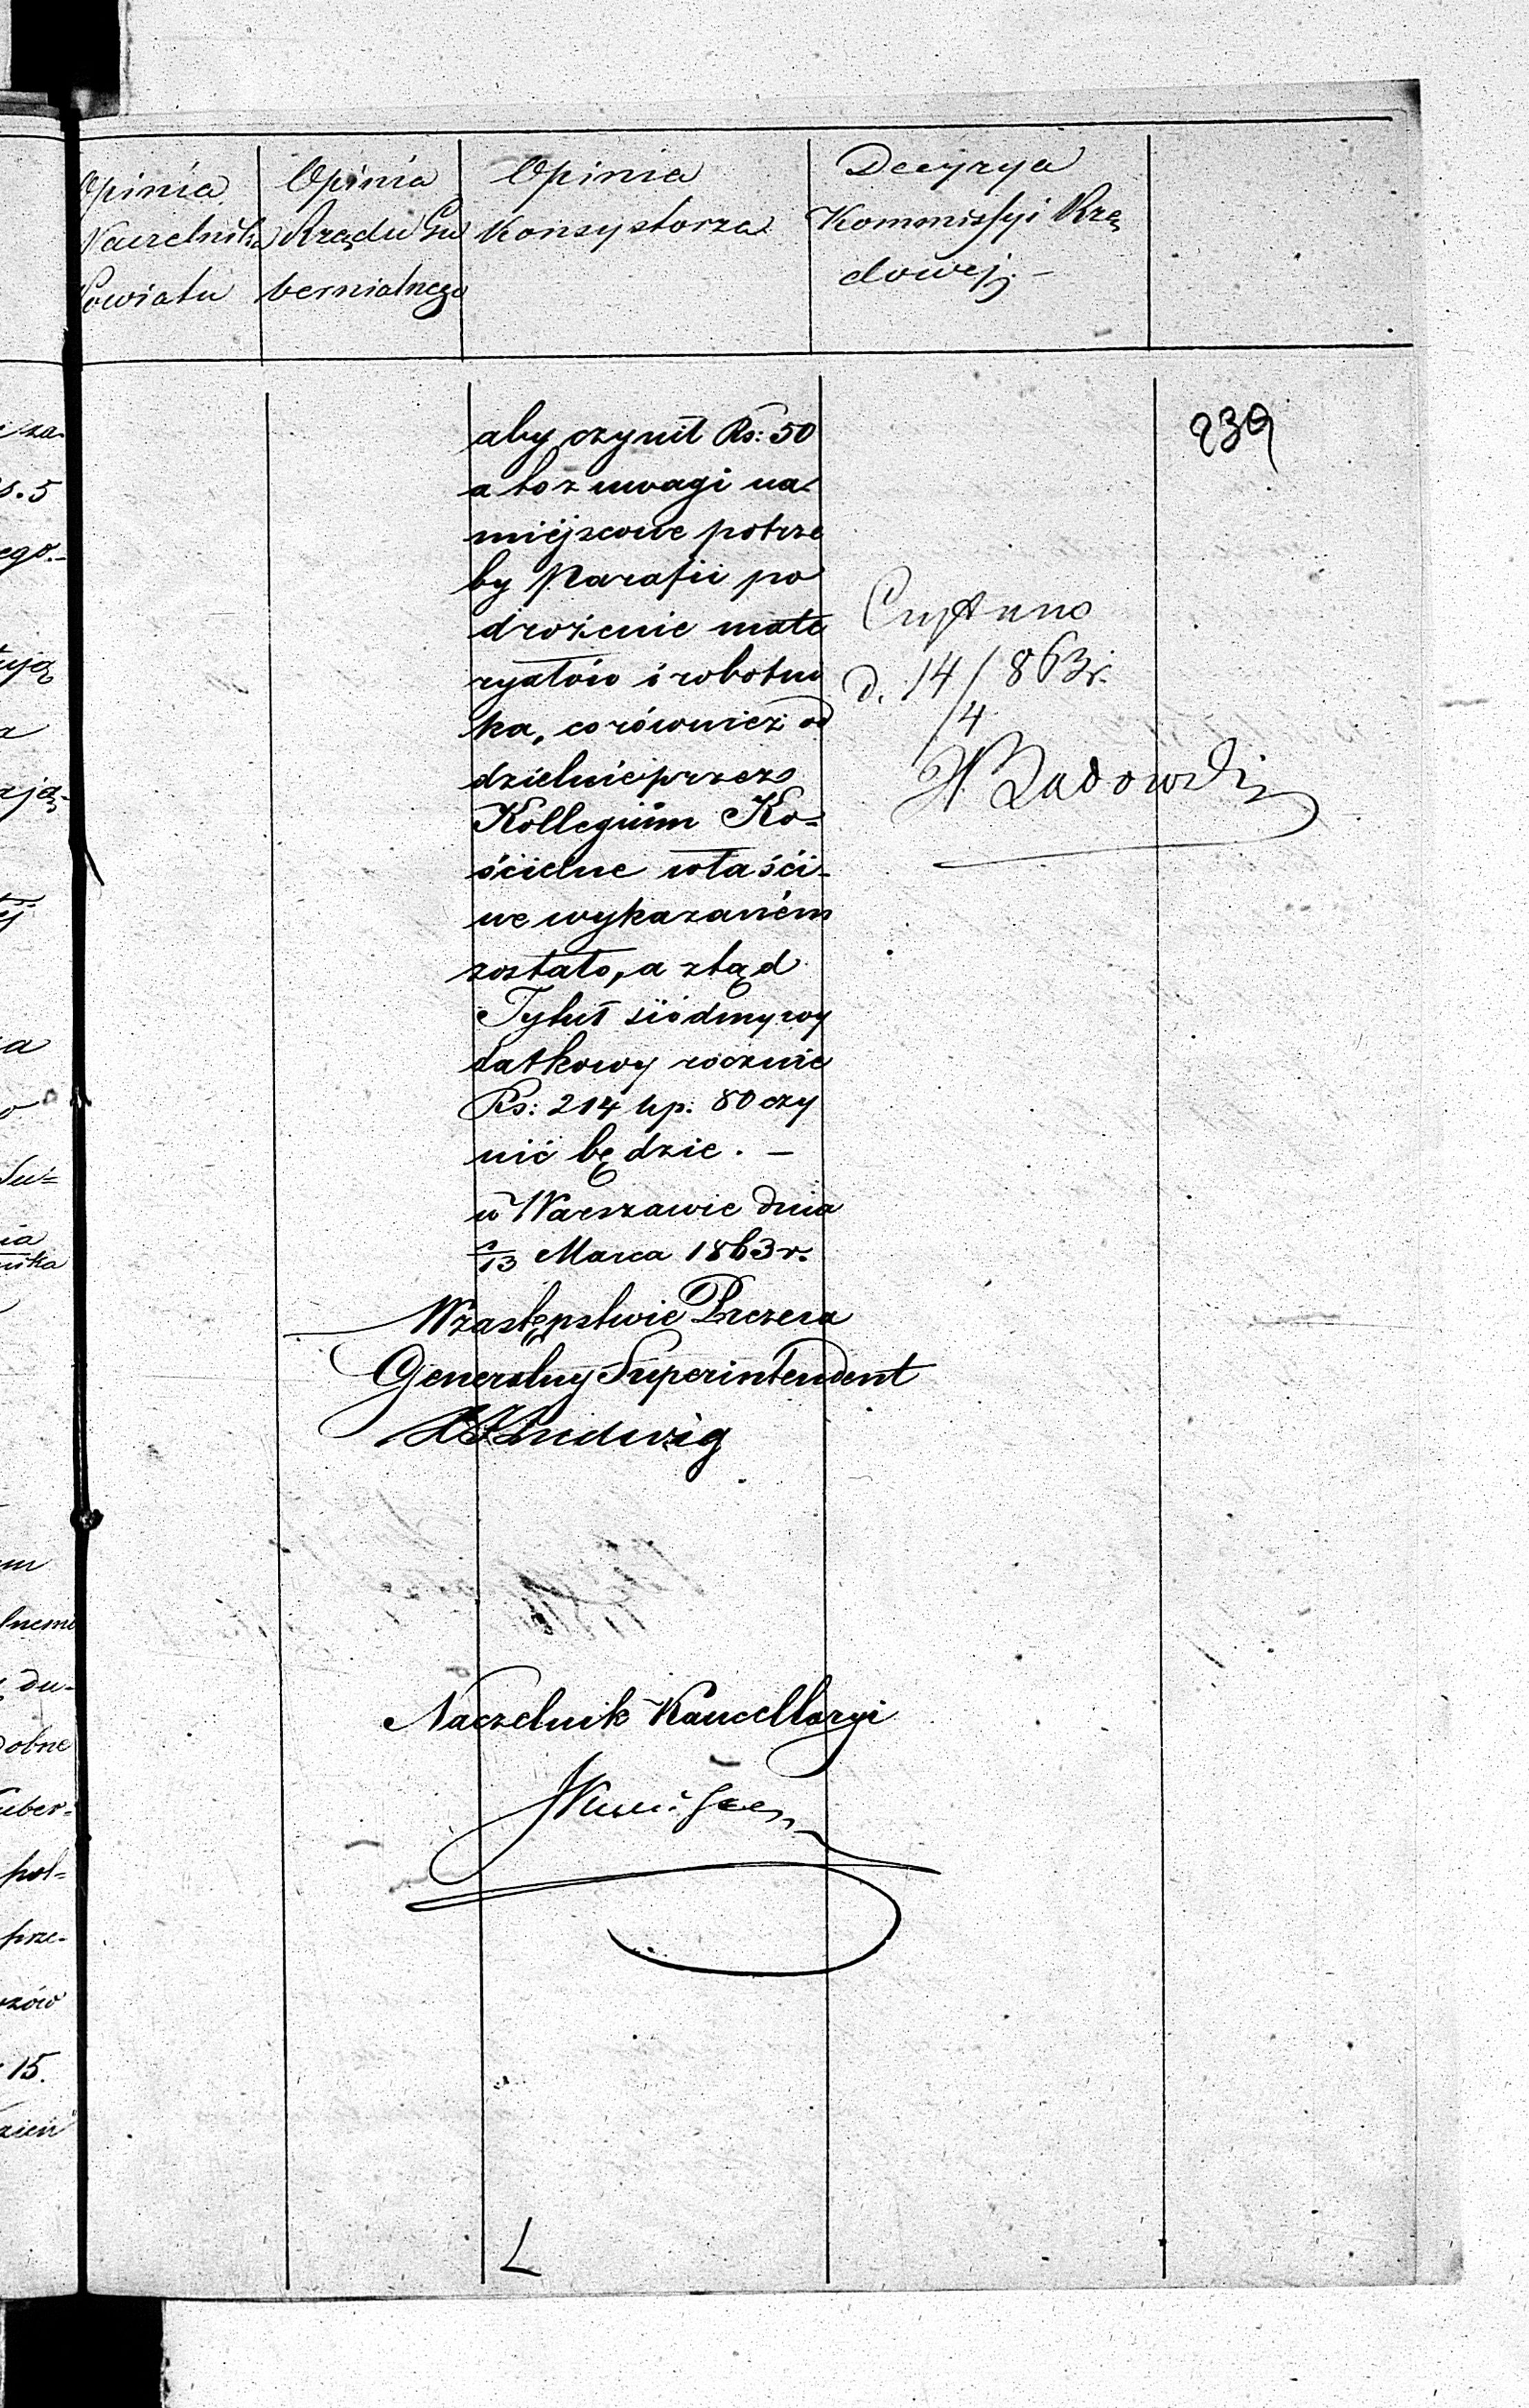 Opinia
Naczelnika
Powiatu
Opinia
Rządu Gu
bernialnego
Opinia
Konsystorza
Decyzya
Kommissyi Rzą
dowej. -
239
aby czynił Rs: 50
a to z uwagi na
miejscowe potrze
by Parafii po
drożenie mate
ryałów i robotni
ka, co również od
dzielnie przez
Kollegium Ko-
ścielne właści-
we wykazaném
zostało, a ztąd
Tytuł siódmy wy
datkowy rocznie
Rs: 214 kp: 80 czy
nić będzie. -
w Warszawie dnia
1/13 Marca 1863 r.
W zastępstwie Prezesa
Generalny Superintendent
Ludwig
Czytano
d. 14/4 863 r.
Naczelnik Kancellaryi